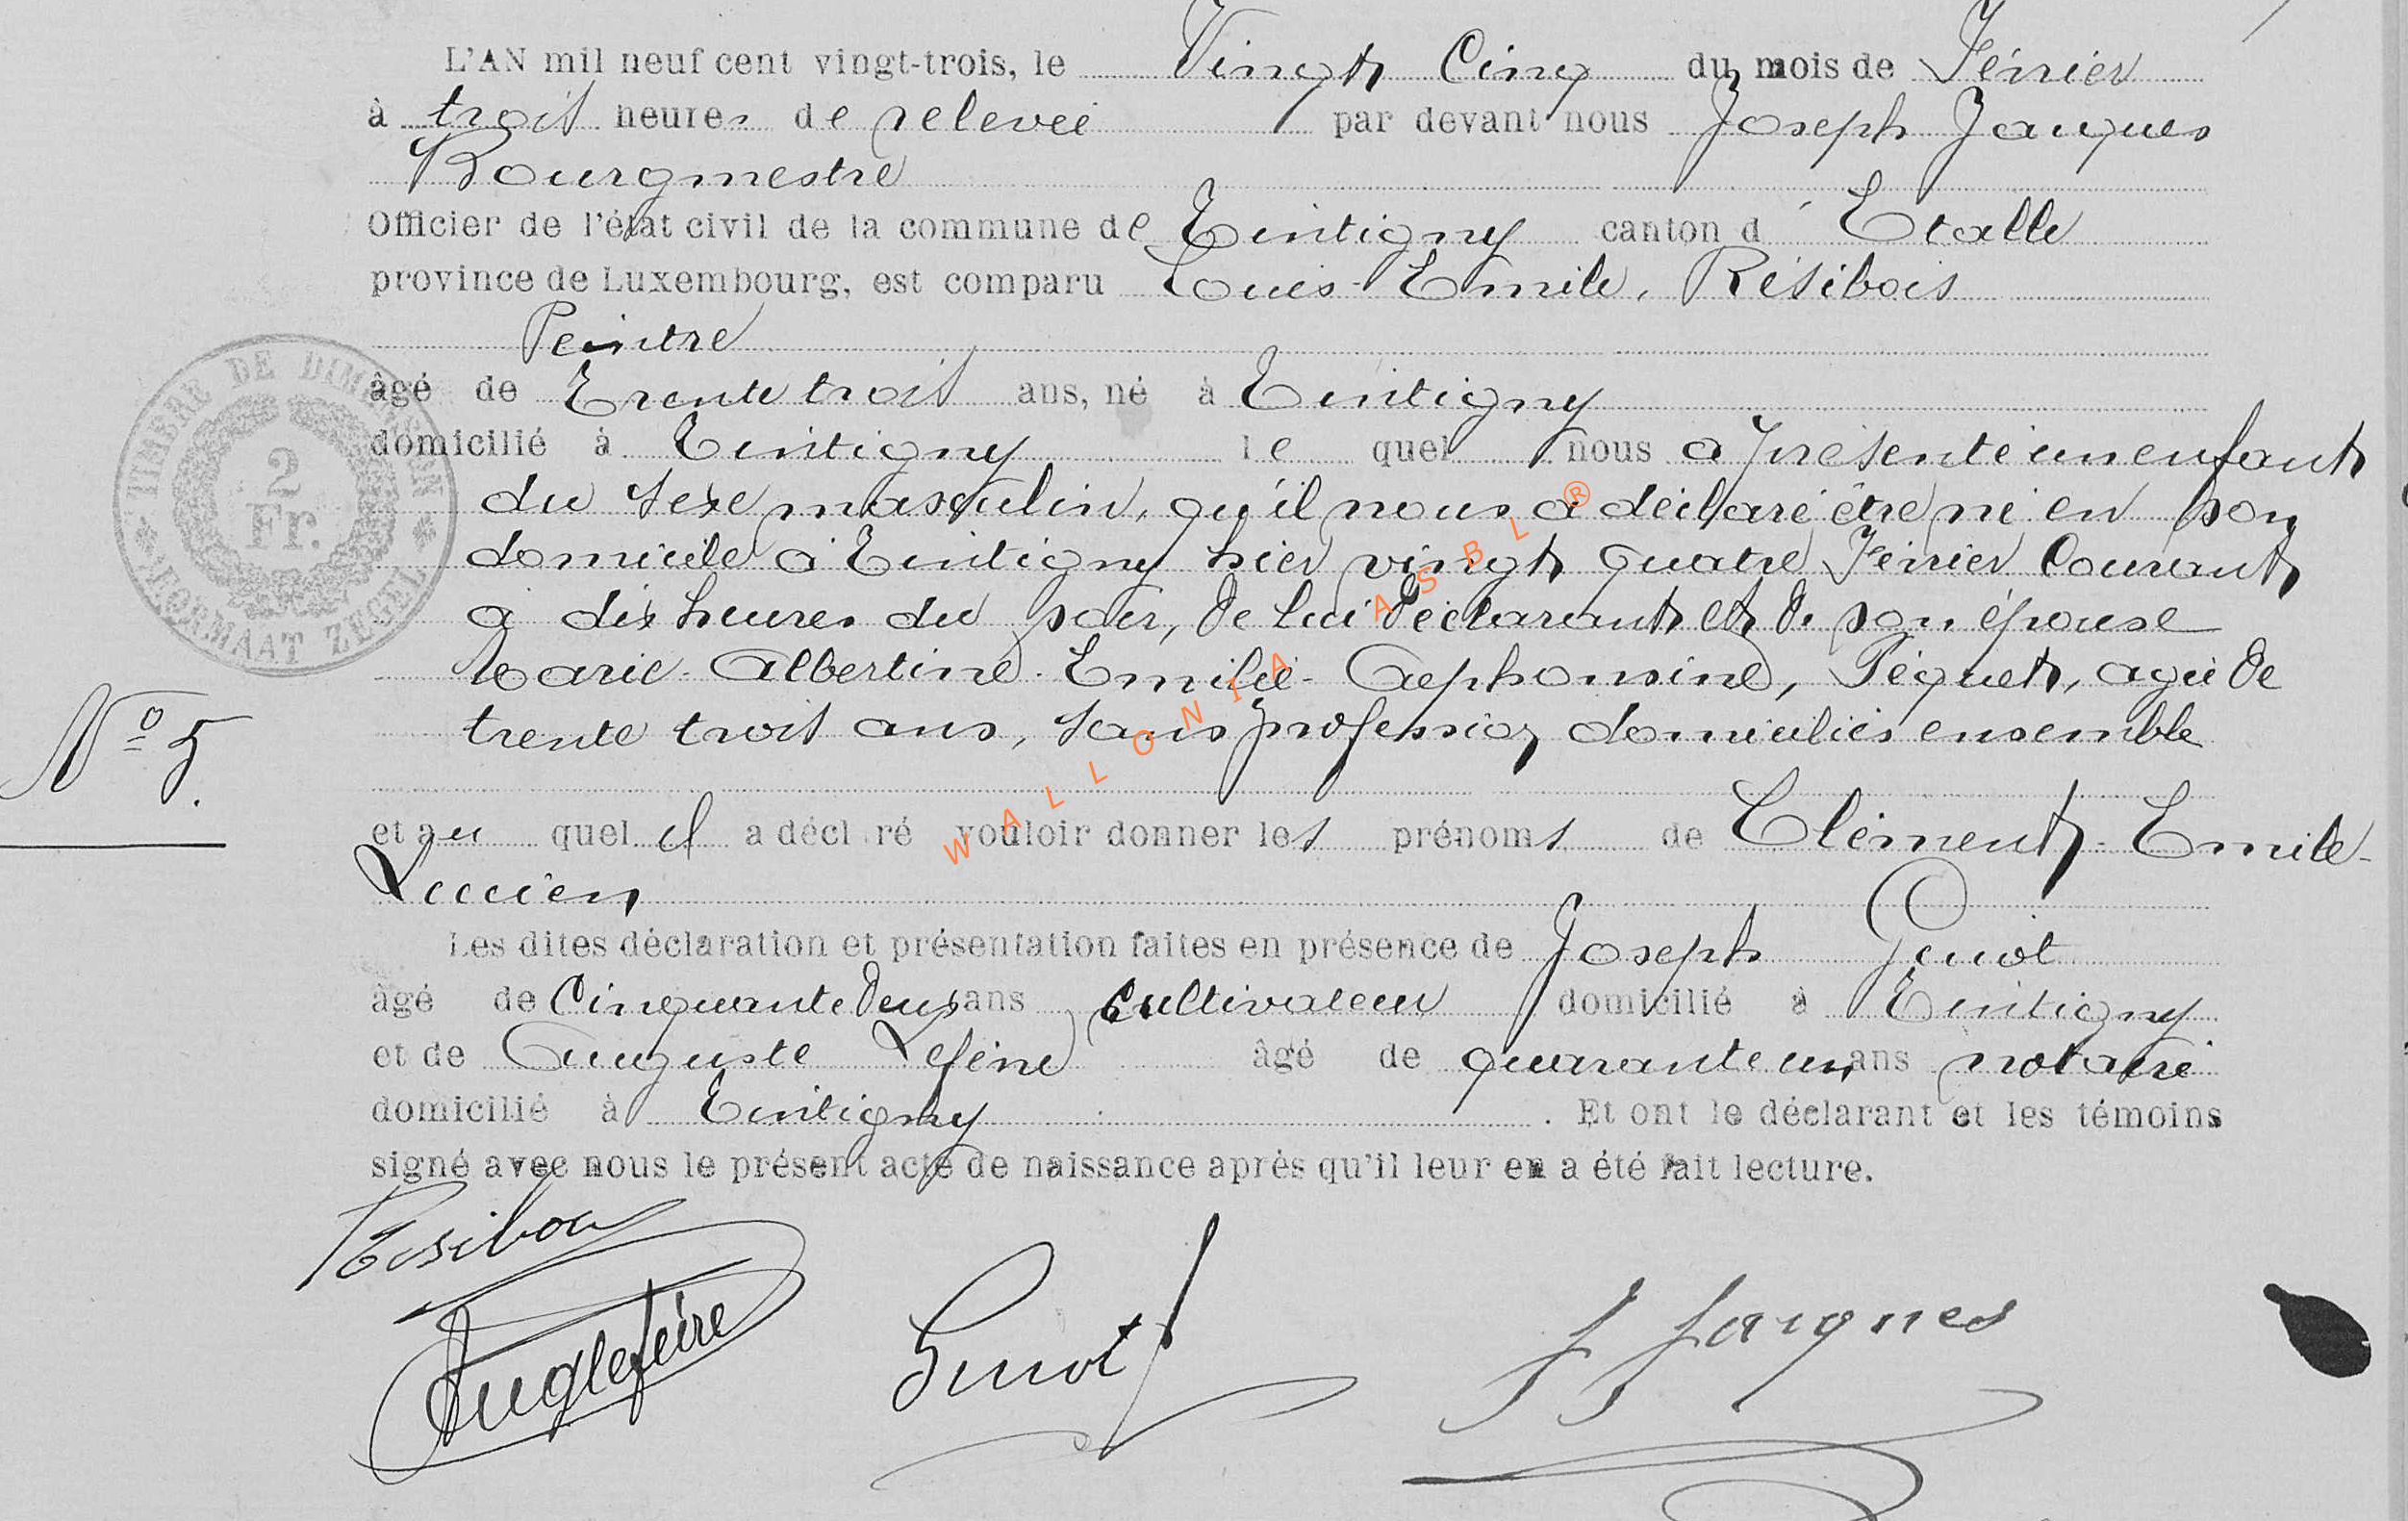 L'AN mil neuf cent vingt-trois, le Vingt Cinq du mois de Février
à trois heures de relevée par devant nous Joseph Jacques
Bourgmestre
Officier de l'état civil de la commune de Tintigny canton d'Etalle
province de Luxembourg, est comparu Louis-Emile, Résibois
Peintre
âgé de Trente trois ans, né à Tintigny
domicilié à Tintigny le quel nous a présenté un enfant
du sexe masculin, qu'il nous a déclaré être né en son
domicile à Tintigny hier vingt quatre Février Courant
à dix heures du soir, de lui déclarant et de son épouse
Marie-Albertine-Emilie-Alphonsine, Péquet, agée de
trente trois ans, sans profession domiciliés ensemble
N° 5.
et au quel il a décl ré vouloir donner les prénoms de Clément-Emile-
Lucien
Les dites déclaration et présentation faites en présence de Joseph Genot
âgé de Cinquante deux ans cultivateur domicilié à Tintigny
et de Auguste Lefèvre âgé de quarante un ans notaire
domicilié à Tintigny. Et ont le déclarant et les témoins
signé avec nous le présent acte de naissance après qu'il leur en a été fait lecture.
Résibois
Aug Lefèvre
Genot
J Jacques
TIMBRE DE DIMENSION
2
Fr.
FORMAAT ZEGEL
WALLONIA ASBL ®